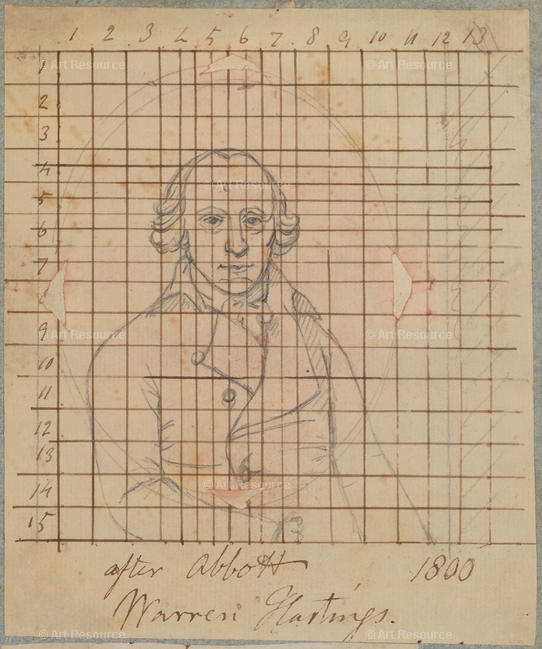 1 2 3 4 5 6 7 8 9 10 11 12 13
1
2
3
4
5
6
7
8
9
10
11
12
13
14
15
after Abbott 1800
Warren Hastings.
© Art Resource
© Art Resource
© Art Resource
© Art Resource
© Art Resource
© Art Resource
© Art Resource
© Art Resource